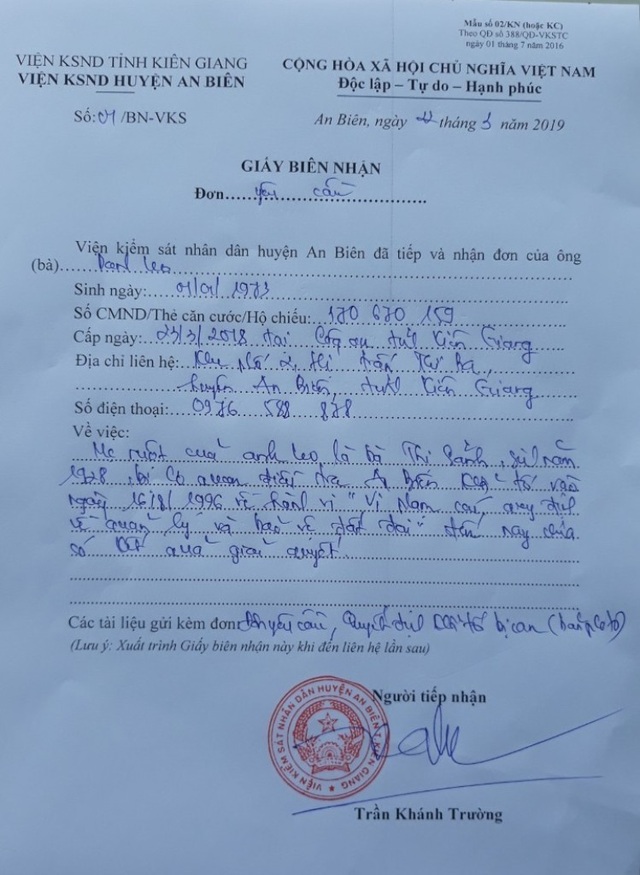 Mẫu số 02/KN (hoặc KC)
Theo QĐ số 388/QĐ-VKSTC
ngày 01 tháng 7 năm 2016
VIỆN KSND TỈNH KIÊN GIANG
VIỆN KSND HUYỆN AN BIÊN
CỘNG HÒA XÃ HỘI CHỦ NGHĨA VIỆT NAM
Độc lập – Tự do – Hạnh phúc
Số: 01 /BN-VKS
An Biên, ngày tháng 3 năm 2019
GIẤY BIÊN NHẬN
Đơn yêu cầu
Viện kiểm sát nhân dân huyện An Biên đã tiếp và nhận đơn của ông
(bà) Danh Leo
Sinh ngày: 01/01/1973
Số CMND/Thẻ căn cước/Hộ chiếu: 370 670 159
Cấp ngày: 23/3/2018 tại Công an tỉnh Kiên Giang
Địa chỉ liên hệ: Khu phố 2, thị trấn Thứ Ba,
huyện An Biên, tỉnh Kiên Giang
Số điện thoại: 0976 588 878
Về việc:
Mẹ ruột của anh Leo là bà Thị Sảnh, sinh năm
bị Cơ quan điều tra An Biên khởi tố vào
ngày 16/8/1996 về hành vi "Vi phạm các quy định
về quản lý và bảo vệ đất đai" đến nay chưa
có kết quả giải quyết.
Các tài liệu gửi kèm đơn: Đơn yêu cầu, Quyết định khởi tố bị can (bản photo)
(Lưu ý: Xuất trình Giấy biên nhận này khi đến liên hệ lần sau)
Người tiếp nhận
VIỆN KIỂM SÁT NHÂN DÂN HUYỆN AN BIÊN T. KIÊN GIANG
Trần Khánh Trường